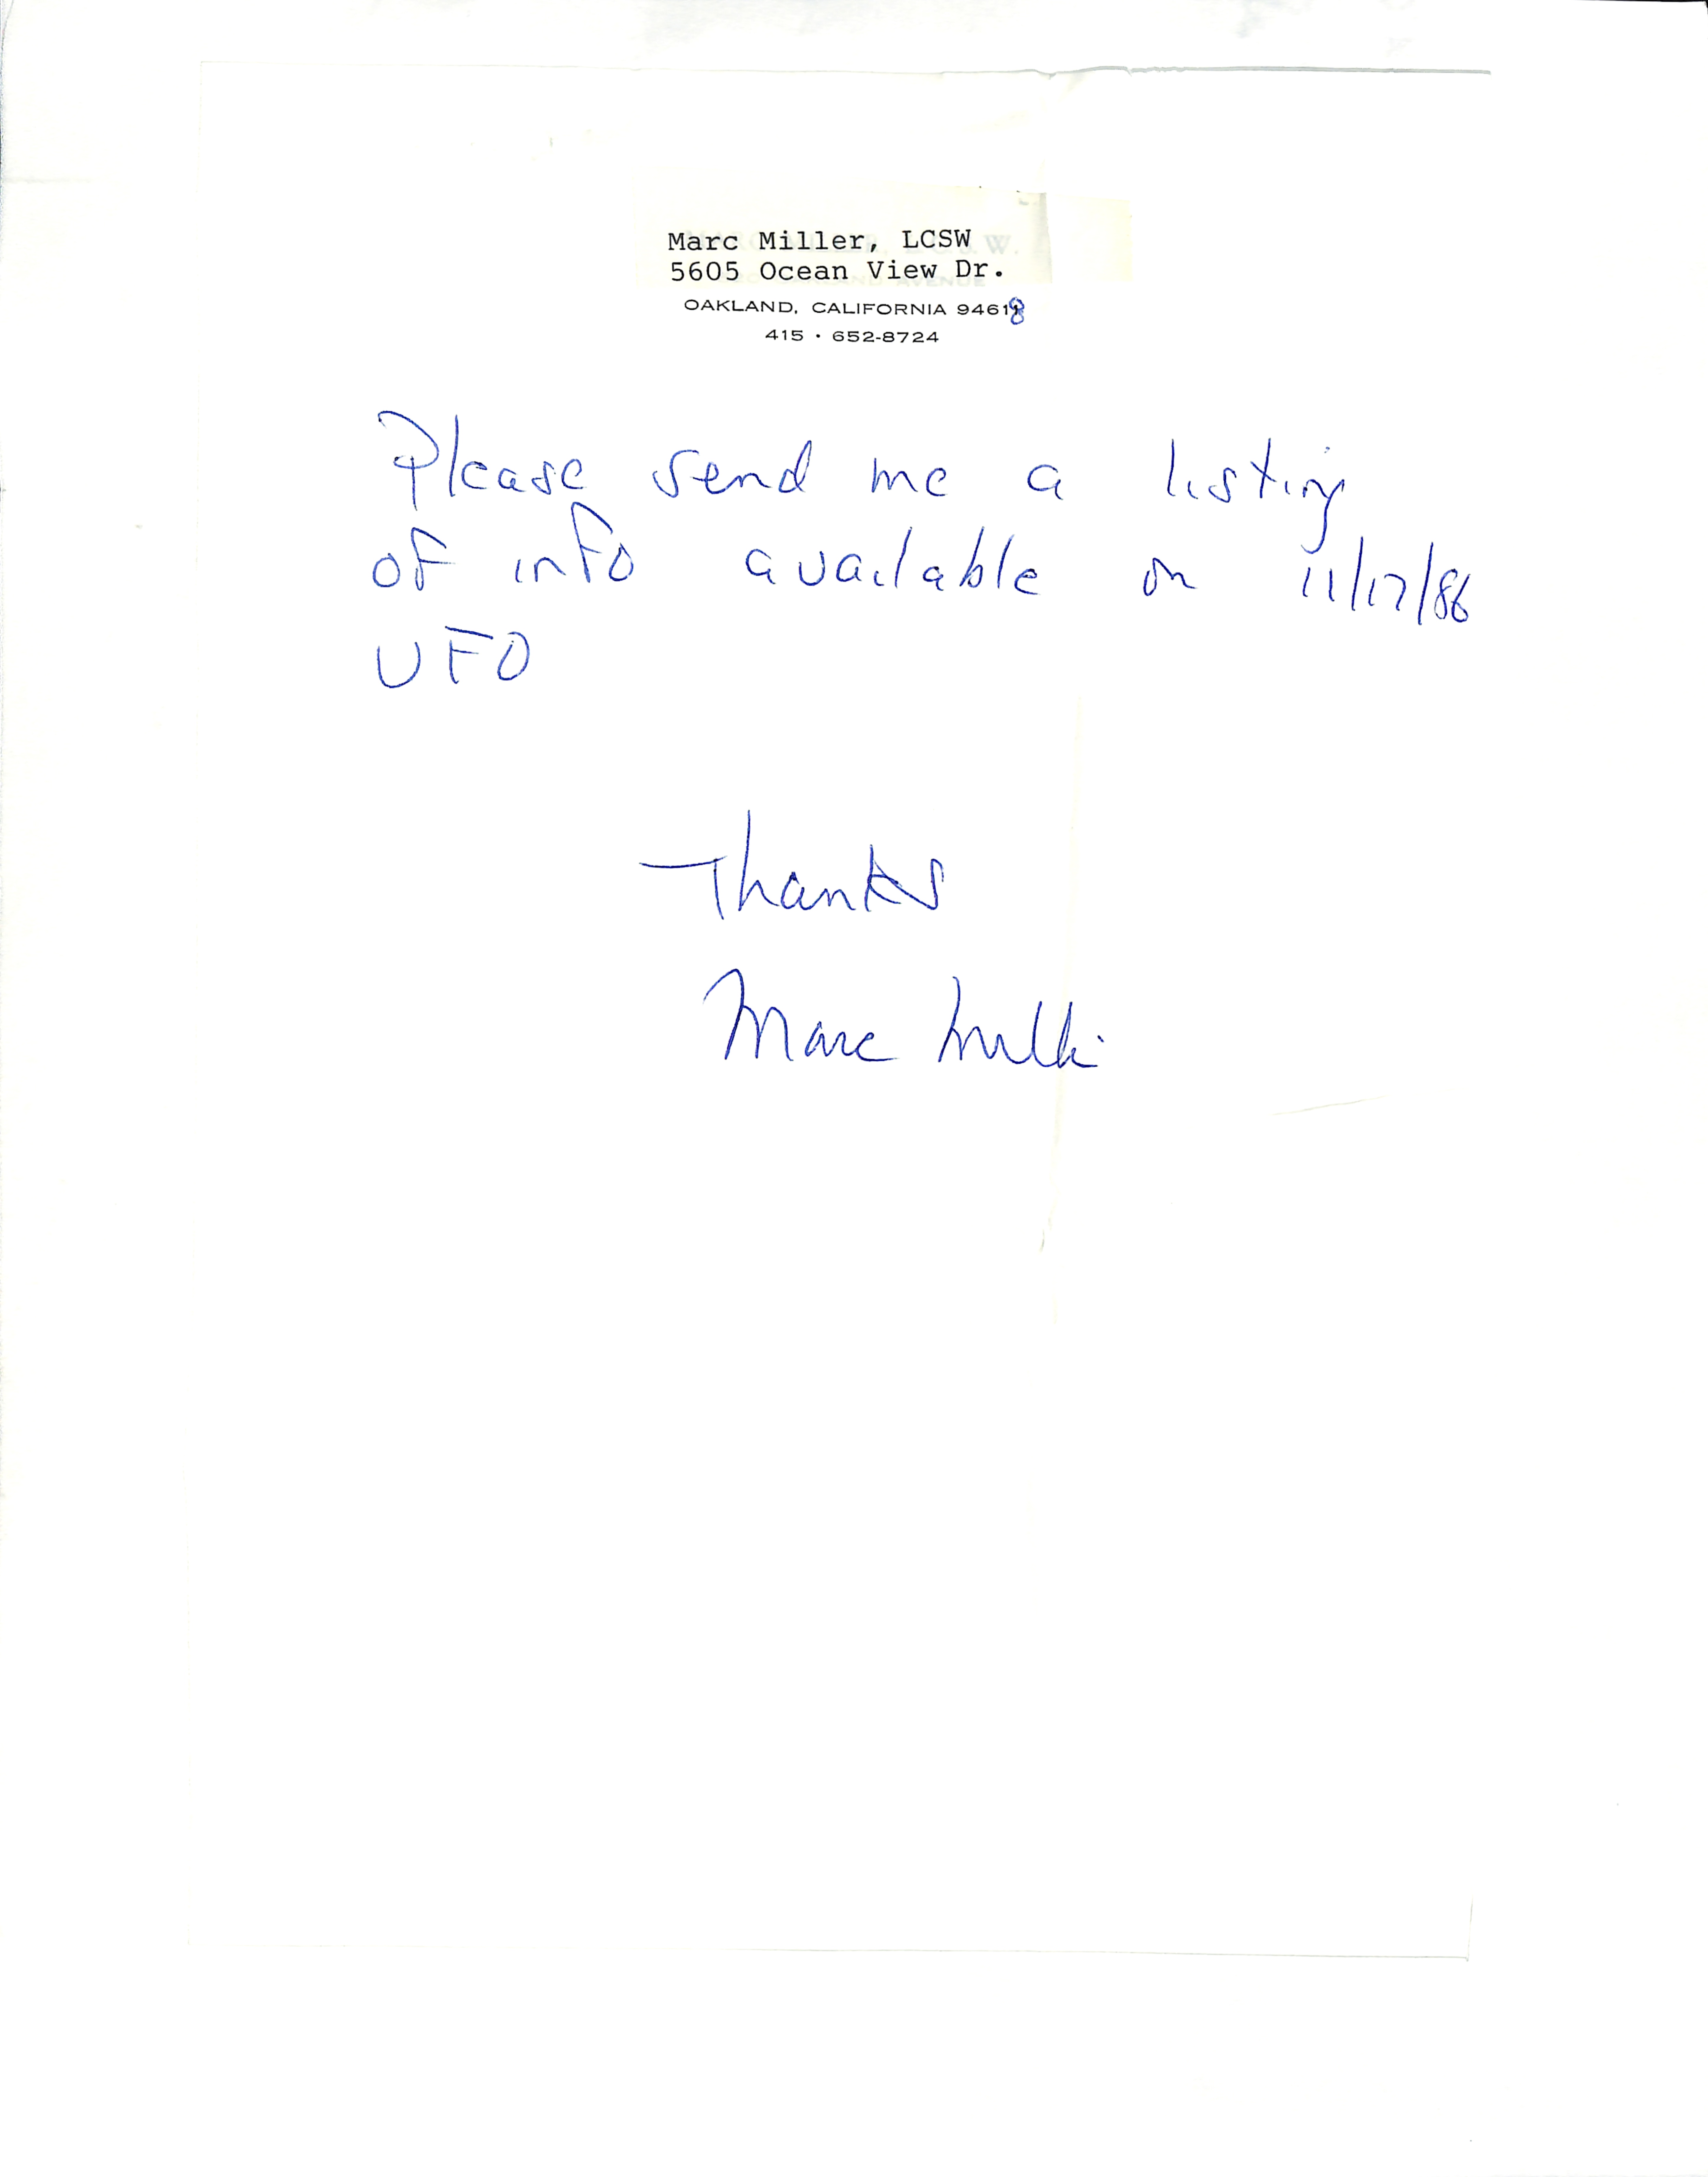 Marc Miller, LCSW
5605 Ocean View Dr.
OAKLAND, CALIFORNIA 94618
415 · 652-8724
Please send me a listing
of info available on 11/17/86
UFO
Thanks
Marc Miller